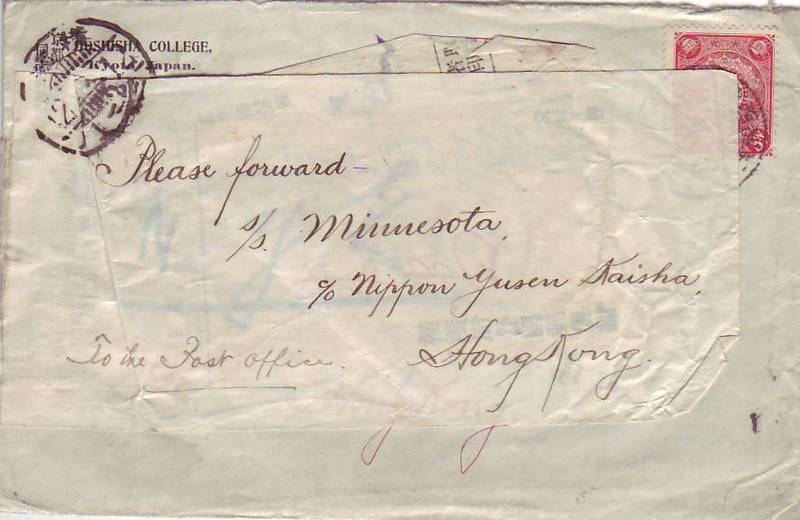 DOSHISHA COLLEGE,
Kyoto Japan.
Please forward –
s/s. Minnesota,
c/o Nippon Yusen Kaisha,
Hong Kong.
To the Post Office.